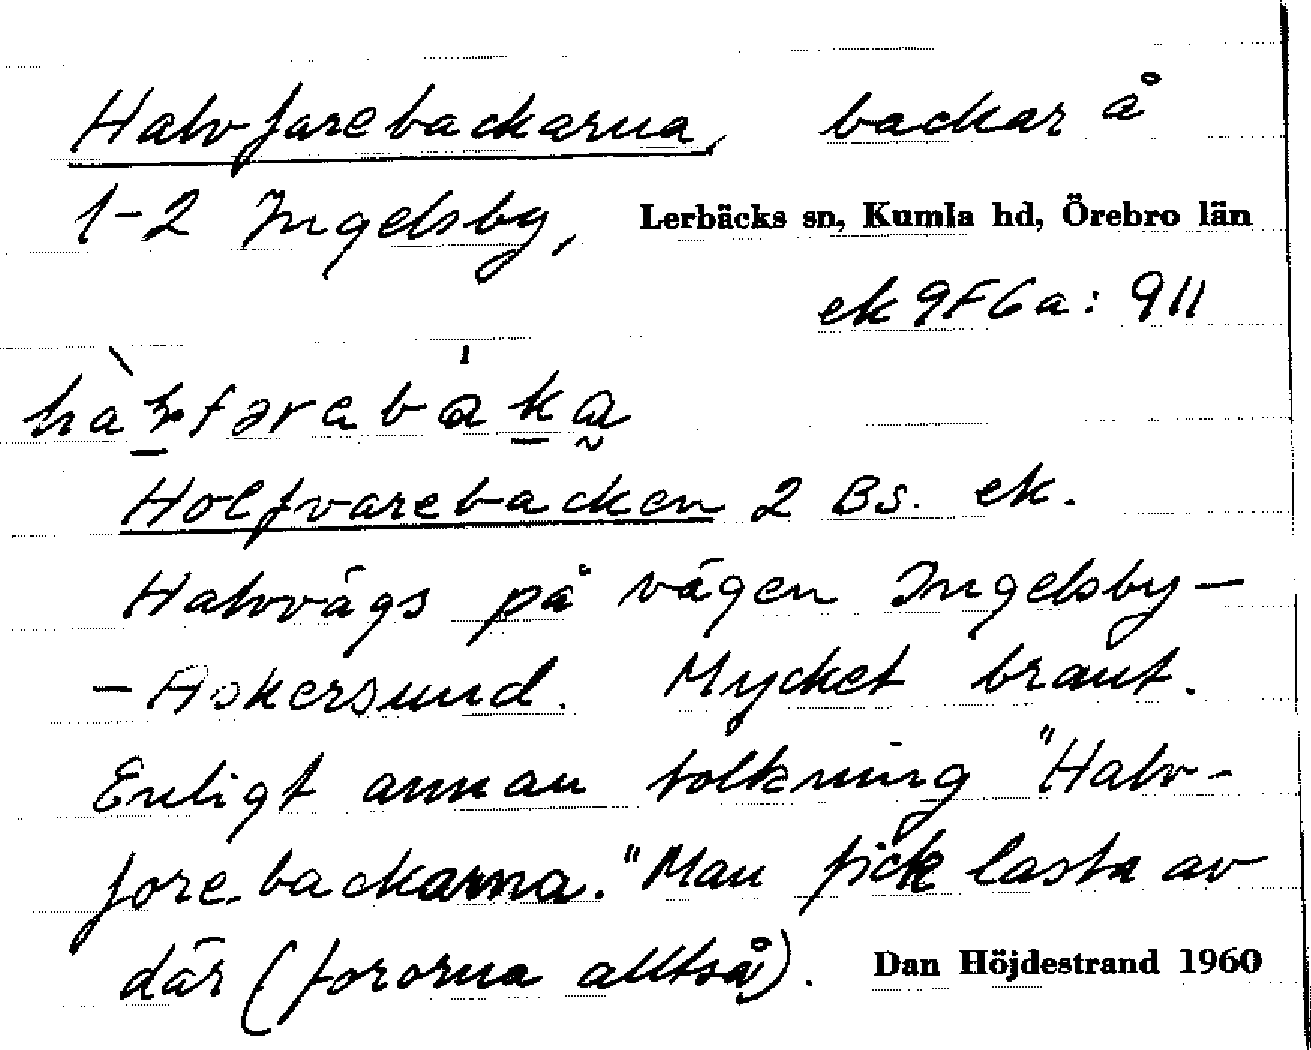 Halvfarebackarna, backar å
1-2 Ingelsby, Lerbäcks sn, Kumla hd, Örebro län
ek 9F6a: 911
Holfvarebacken 2 Bs. ek.
Halvvägs på vägen Ingelsby-
- Askersund. Mycket brant.
Enligt annan tolkning "Halv-
forebackarna." Man fick lasta av
där (fororna alltså). Dan Höjdestrand 1960